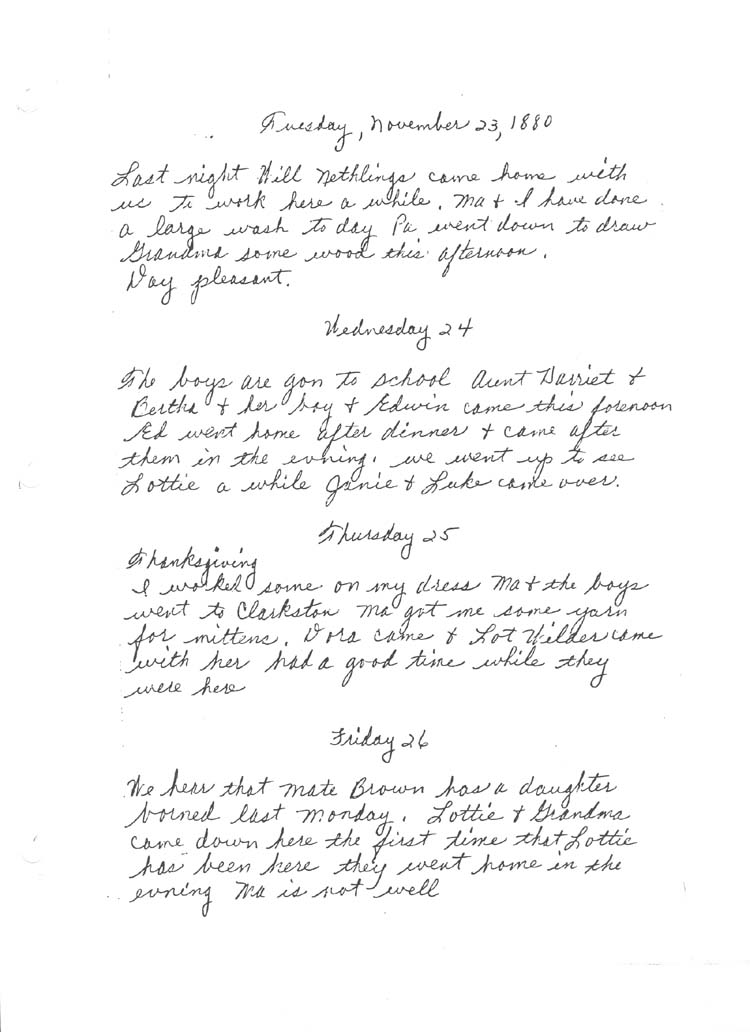 Tuesday, November 23, 1880
Last night Will Nethlings came home with
us to work here a while. Ma & I have done
a large wash to day Pa went down to draw
Grandma some wood this afternoon.
Day pleasant.
Wednesday 24
The boys are gon to school Aunt Harriet &
Bertha & her boy & Edwin came this forenoon
Ed went home after dinner & came after
them in the evning. we went up to see
Lottie a while Janie & Luke came over.
Thursday 25
Thanksgiving
I worked some on my dress Ma & the boys
went to Clarkston Ma got me some yarn
for mittens. Dora came & Lot Wilder came
with her had a good time while they
were here
Friday 26
We hear that Mate Brown has a daughter
borned last Monday. Lottie & Grandma
came down here the first time that Lottie
has been here they went home in the
evning Ma is not well